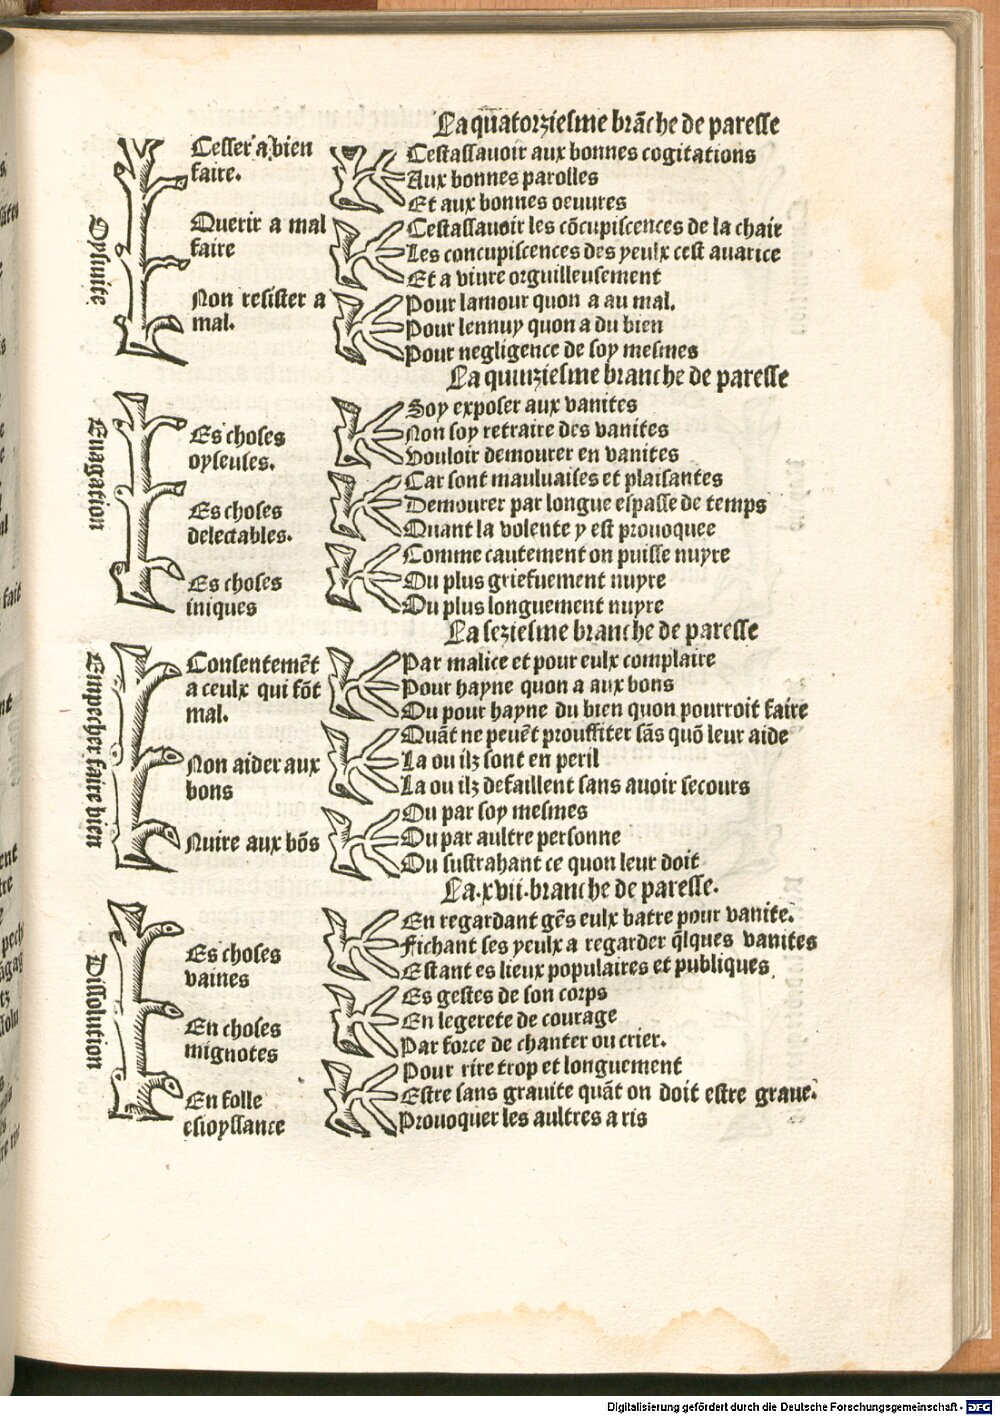 La quatorziesme brãche de paresse
Oysiuite
Cesser a bien
faire.
Cestassauoir aux bonnes cogitations
Aux bonnes parolles
Et aux bonnes oeuures
Querir a mal
faire
Cestassauoir les cõcupiscences de la chair
Les concupiscences des yeulx cest auarice
Et a viure orguilleusement
Non resister a
mal.
Pour lamour quon a au mal.
Pour lennuy quon a du bien
Pour negligence de soy mesmes
La quinziesme branche de paresse
Euagation
Es choses
oyseuses.
Soy exposer aux vanites
Non soy retraire des vanites
Vouloir demourer en vanites
Es choses
delectables.
Car sont mauluaises et plaisantes
Demourer par longue espasse de temps
Quant la volente y est prouoquee
Es choses
iniques
Comme cautement on puisse nuyre
Ou plus griefuement nuyre
Ou plus longuement nuyre
La seziesme branche de paresse
Empecher faire bien
Consentemẽt
a ceulx qui fõt
mal.
Par malice et pour eulx complaire
Pour hayne quon a aux bons
Ou pour hayne du bien quon pourroit faire
Non aider aux
bons
Quãt ne peuẽt prouffiter sãs quõ leur aide
La ou ilz sont en peril
La ou ilz defaillent sans auoir secours
Nuire aux bõs
Ou par soy mesmes
Ou par aultre personne
Ou sustrahant ce quon leur doit
La.xvii.branche de paresse.
Dissolution
Es choses
vaines
En regardant gẽs eulx batre pour vanite.
Fichant ses yeulx a regarder q̃lques vanites
Estant es lieux populaires et publiques
En choses
mignotes
Es gestes de son corps
En legerete de courage
Par force de chanter ou crier.
En folle
esioyssance
Pour rire trop et longuement
Estre sans grauite quãt on doit estre graue.
Prouoquer les aultres a ris
Digitalisierung gefördert durch die Deutsche Forschungsgemeinschaft - DFG